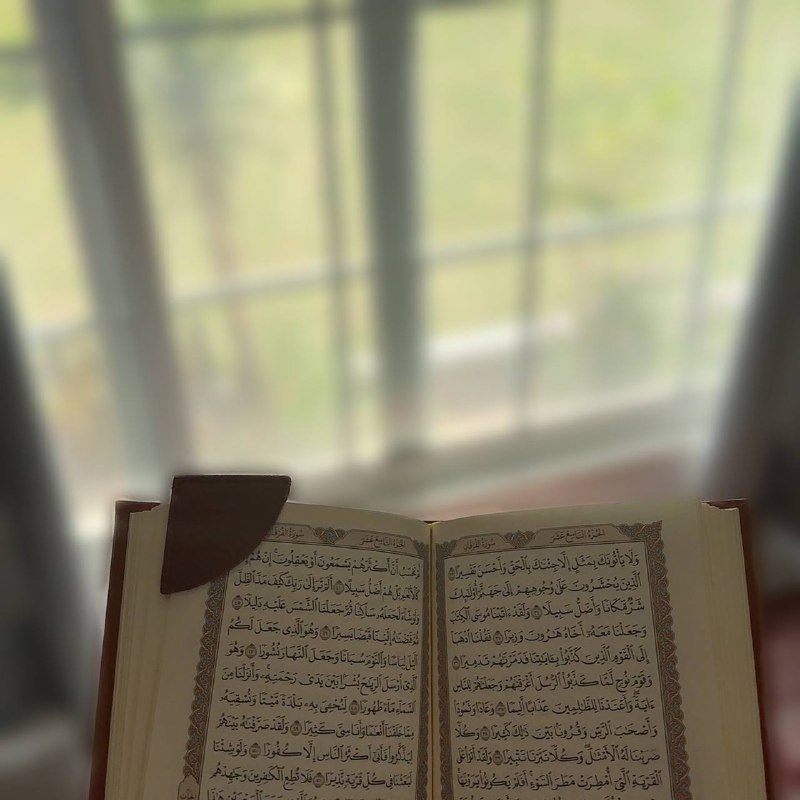 الجُزْءُ التَّاسِعَ عَشَرَ سُورَةُ الفُرْقَانِ
وَلَا يَأْتُونَكَ بِمَثَلٍ إِلَّا جِئْنَٰكَ بِٱلْحَقِّ وَأَحْسَنَ تَفْسِيرًا ٣٣
ٱلَّذِينَ يُحْشَرُونَ عَلَىٰ وُجُوهِهِمْ إِلَىٰ جَهَنَّمَ أُو۟لَٰٓئِكَ
شَرٌّ مَّكَانًا وَأَضَلُّ سَبِيلًا ٣٤ وَلَقَدْ ءَاتَيْنَا مُوسَى ٱلْكِتَٰبَ
وَجَعَلْنَا مَعَهُۥٓ أَخَاهُ هَٰرُونَ وَزِيرًا ٣٥ فَقُلْنَا ٱذْهَبَآ
إِلَى ٱلْقَوْمِ ٱلَّذِينَ كَذَّبُوا۟ بِـَٔايَٰتِنَا فَدَمَّرْنَٰهُمْ تَدْمِيرًا ٣٦
وَقَوْمَ نُوحٍ لَّمَّا كَذَّبُوا۟ ٱلرُّسُلَ أَغْرَقْنَٰهُمْ وَجَعَلْنَٰهُمْ لِلنَّاسِ
ءَايَةً وَأَعْتَدْنَا لِلظَّٰلِمِينَ عَذَابًا أَلِيمًا ٣٧ وَعَادًا وَثَمُودَا۟
وَأَصْحَٰبَ ٱلرَّسِّ وَقُرُونًۢا بَيْنَ ذَٰلِكَ كَثِيرًا ٣٨ وَكُلًّا
ضَرَبْنَا لَهُ ٱلْأَمْثَٰلَ وَكُلًّا تَبَّرْنَا تَتْبِيرًا ٣٩ وَلَقَدْ أَتَوْا۟ عَلَى
ٱلْقَرْيَةِ ٱلَّتِىٓ أُمْطِرَتْ مَطَرَ ٱلسَّوْءِ أَفَلَمْ يَكُونُوا۟ يَرَوْنَهَا
الجُزْءُ التَّاسِعَ عَشَرَ سُورَةُ الفُرْقَانِ
تَحْسَبُ أَنَّ أَكْثَرَهُمْ يَسْمَعُونَ أَوْ يَعْقِلُونَ إِنْ هُمْ
كَٱلْأَنْعَٰمِ بَلْ هُمْ أَضَلُّ سَبِيلًا ٤٤ أَلَمْ تَرَ إِلَىٰ رَبِّكَ كَيْفَ مَدَّ ٱلظِّلَّ
وَلَوْ شَآءَ لَجَعَلَهُۥ سَاكِنًا ثُمَّ جَعَلْنَا ٱلشَّمْسَ عَلَيْهِ دَلِيلًا ٤٥
ثُمَّ قَبَضْنَٰهُ إِلَيْنَا قَبْضًا يَسِيرًا ٤٦ وَهُوَ ٱلَّذِى جَعَلَ لَكُمُ
ٱلَّيْلَ لِبَاسًا وَٱلنَّوْمَ سُبَاتًا وَجَعَلَ ٱلنَّهَارَ نُشُورًا ٤٧ وَهُوَ
ٱلَّذِىٓ أَرْسَلَ ٱلرِّيَٰحَ بُشْرًۢا بَيْنَ يَدَىْ رَحْمَتِهِۦ وَأَنزَلْنَا مِنَ
ٱلسَّمَآءِ مَآءً طَهُورًا ٤٨ لِّنُحْۦِىَ بِهِۦ بَلْدَةً مَّيْتًا وَنُسْقِيَهُۥ
مِمَّا خَلَقْنَآ أَنْعَٰمًا وَأَنَاسِىَّ كَثِيرًا ٤٩ وَلَقَدْ صَرَّفْنَٰهُ بَيْنَهُمْ
لِيَذَّكَّرُوا۟ فَأَبَىٰٓ أَكْثَرُ ٱلنَّاسِ إِلَّا كُفُورًا ٥٠ وَلَوْ شِئْنَا
لَبَعَثْنَا فِى كُلِّ قَرْيَةٍ نَّذِيرًا ٥١ فَلَا تُطِعِ ٱلْكَٰفِرِينَ وَجَٰهِدْهُم